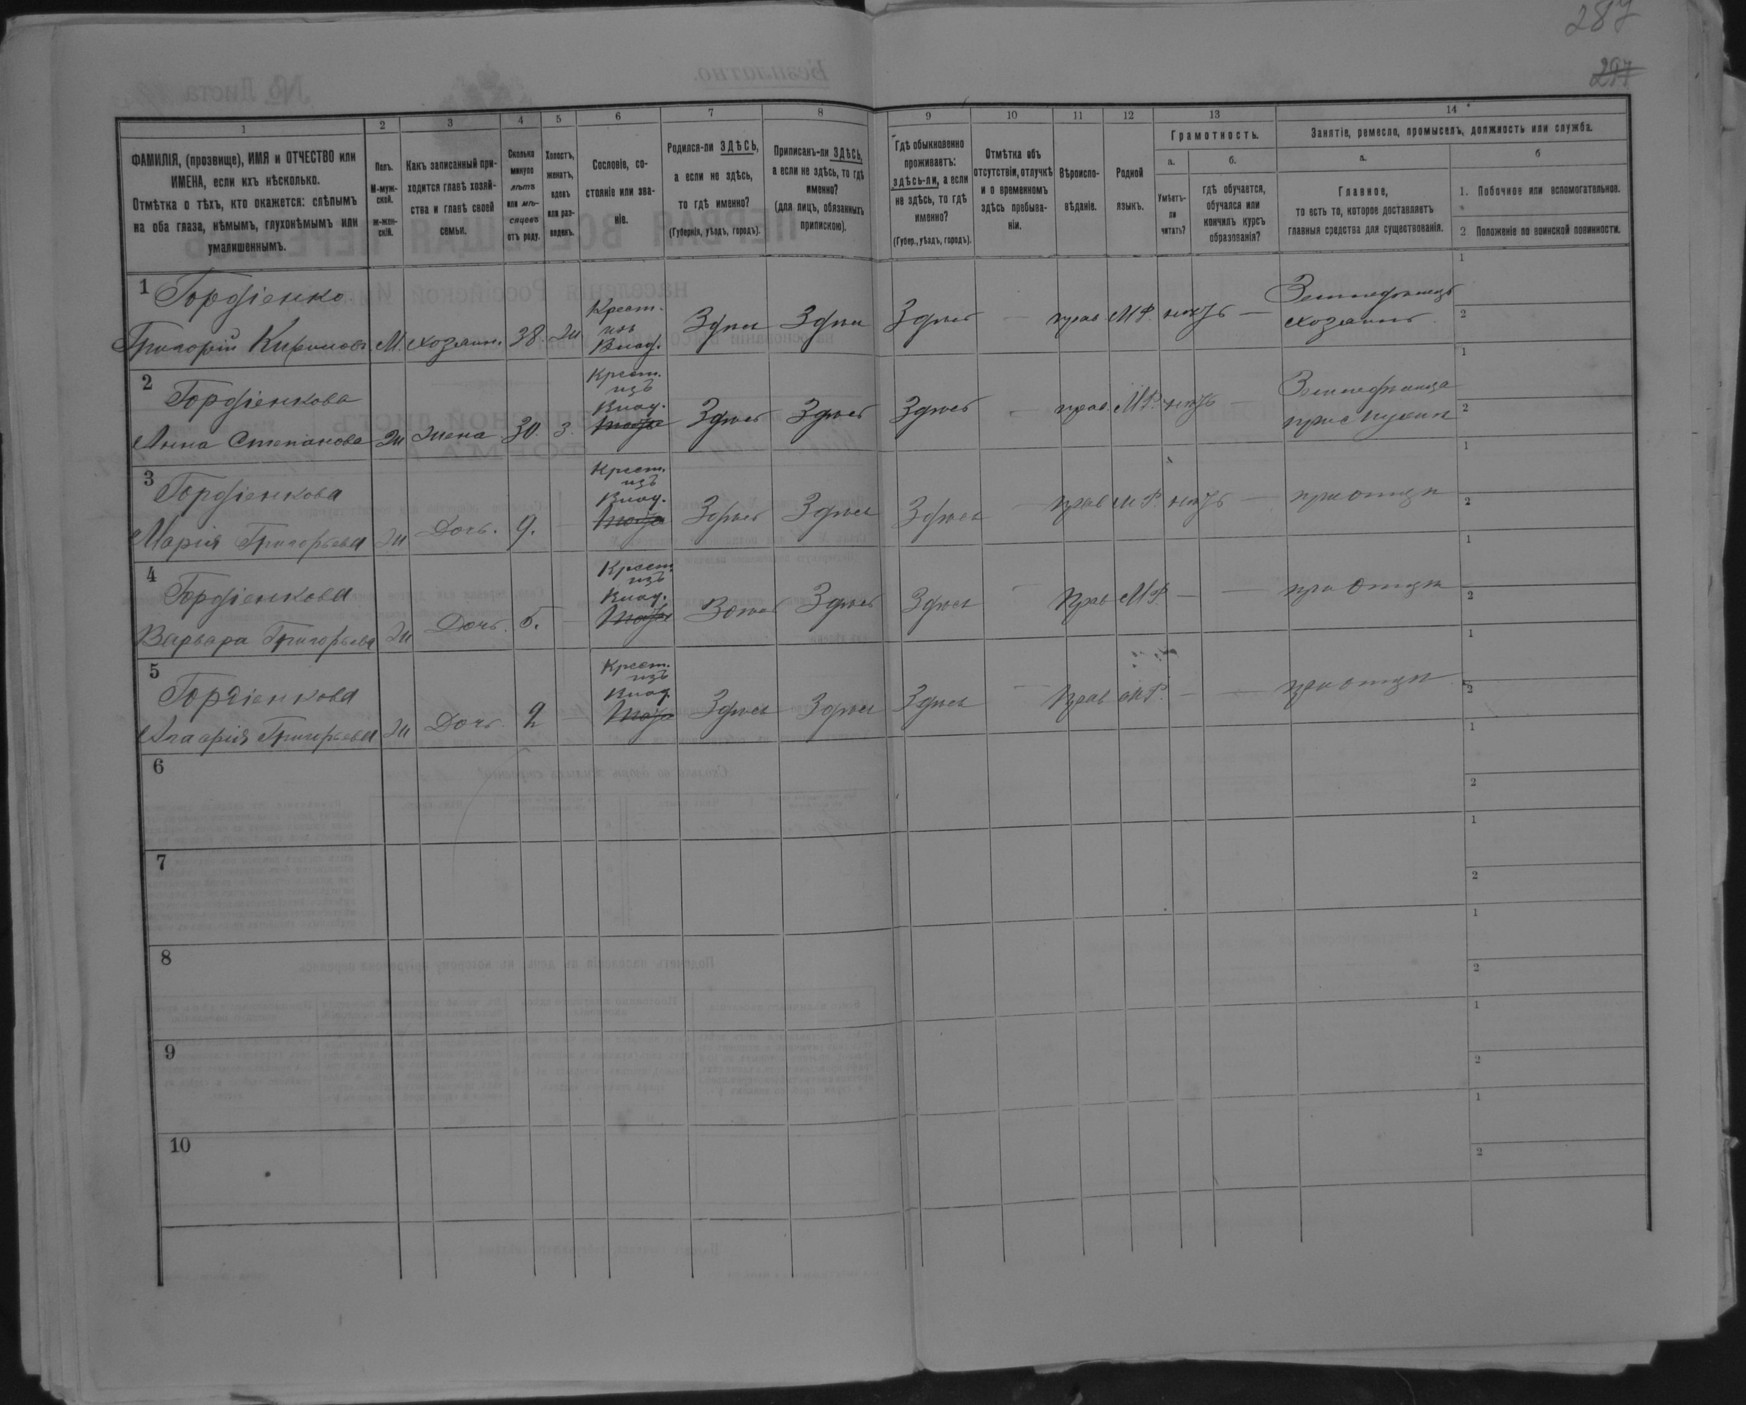 287
297
1
2
3
4
5
6
7
8
9
10
11
12
13
14
ФАМИЛІЯ, (прозвище), ИМЯ и ОТЧЕСТВО или
ИМЕНА, если ихъ нѣсколько.
Отмѣтка о тѣхъ, кто окажется: слѣпымъ
на оба глаза, нѣмымъ, глухонѣмымъ или
умалишеннымъ.
Полъ.
М-муж-
ской.
Ж-жен-
скій.
Какъ записанный при-
ходится главѣ хозяй-
ства и главѣ своей
семьи.
Сколько
минуло
лѣтъ
или мѣ-
сяцевъ
отъ роду.
Холостъ,
женатъ,
вдовъ
или раз-
веденъ.
Сословіе, со-
стояніе или зва-
ніе.
Родился-ли ЗДѢСЬ,
а если не здѣсь,
то гдѣ именно?
(Губернія, уѣздъ, городъ).
Приписанъ-ли ЗДѢСЬ,
а если не здѣсь, то гдѣ
именно?
(для лицъ, обязанныхъ
припискою).
Гдѣ обыкновенно
проживаетъ:
здѣсь-ли, а если
не здѣсь, то гдѣ
именно?
(Губер., уѣздъ, городъ).
Отмѣтка объ
отсутствіи, отлучкѣ
и о временномъ
здѣсь пребыва-
ніи.
Вѣроиспо-
вѣданіе.
Родной
языкъ.
Грамотность.
а.
б.
Умѣетъ-
ли
читать?
гдѣ обучается,
обучался или
кончилъ курсъ
образованія?
Занятіе, ремесло, промыселъ, должность или служба.
а.
б
Главное,
то есть то, которое доставляетъ
главныя средства для существованія.
1. Побочное или вспомогательное.
2 Положеніе по воинской повинности.
1 Гордіенко
Григорій Кириловъ М. хозяинъ. 38 Ж Крест. изъ Влад. Здѣсь Здѣсь Здѣсь — прав М.Р. нѣтъ — Земледѣлецъ хозяинъ 1 2
2 Гордіенкова
Анна Степанова Ж жена 30. З. Крест. изъ Влад. Здѣсь Здѣсь Здѣсь — прав М.Р. нѣтъ — Земледѣлица при мужѣ 1 2
3 Гордіенкова
Марія Григорьева Ж Дочь. 9. — Крест. изъ Влад. Здѣсь Здѣсь Здѣсь — прав М.Р. нѣтъ — при отцѣ 1 2
4 Гордіенкова
Варвара Григорьева Ж Дочь. 5. — Крест изъ Влад. Здѣсь Здѣсь Здѣсь — прав М.Р. — — при отцѣ 1 2
5 Гордіенкова
Григорьева Ж Дочь 2 — Крест. изъ Влад. Здѣсь Здѣсь Здѣсь — Прав М.Р. — — при отцѣ 1 2
6 1 2
7 1 2
8 1 2
9 1 2
10 1 2